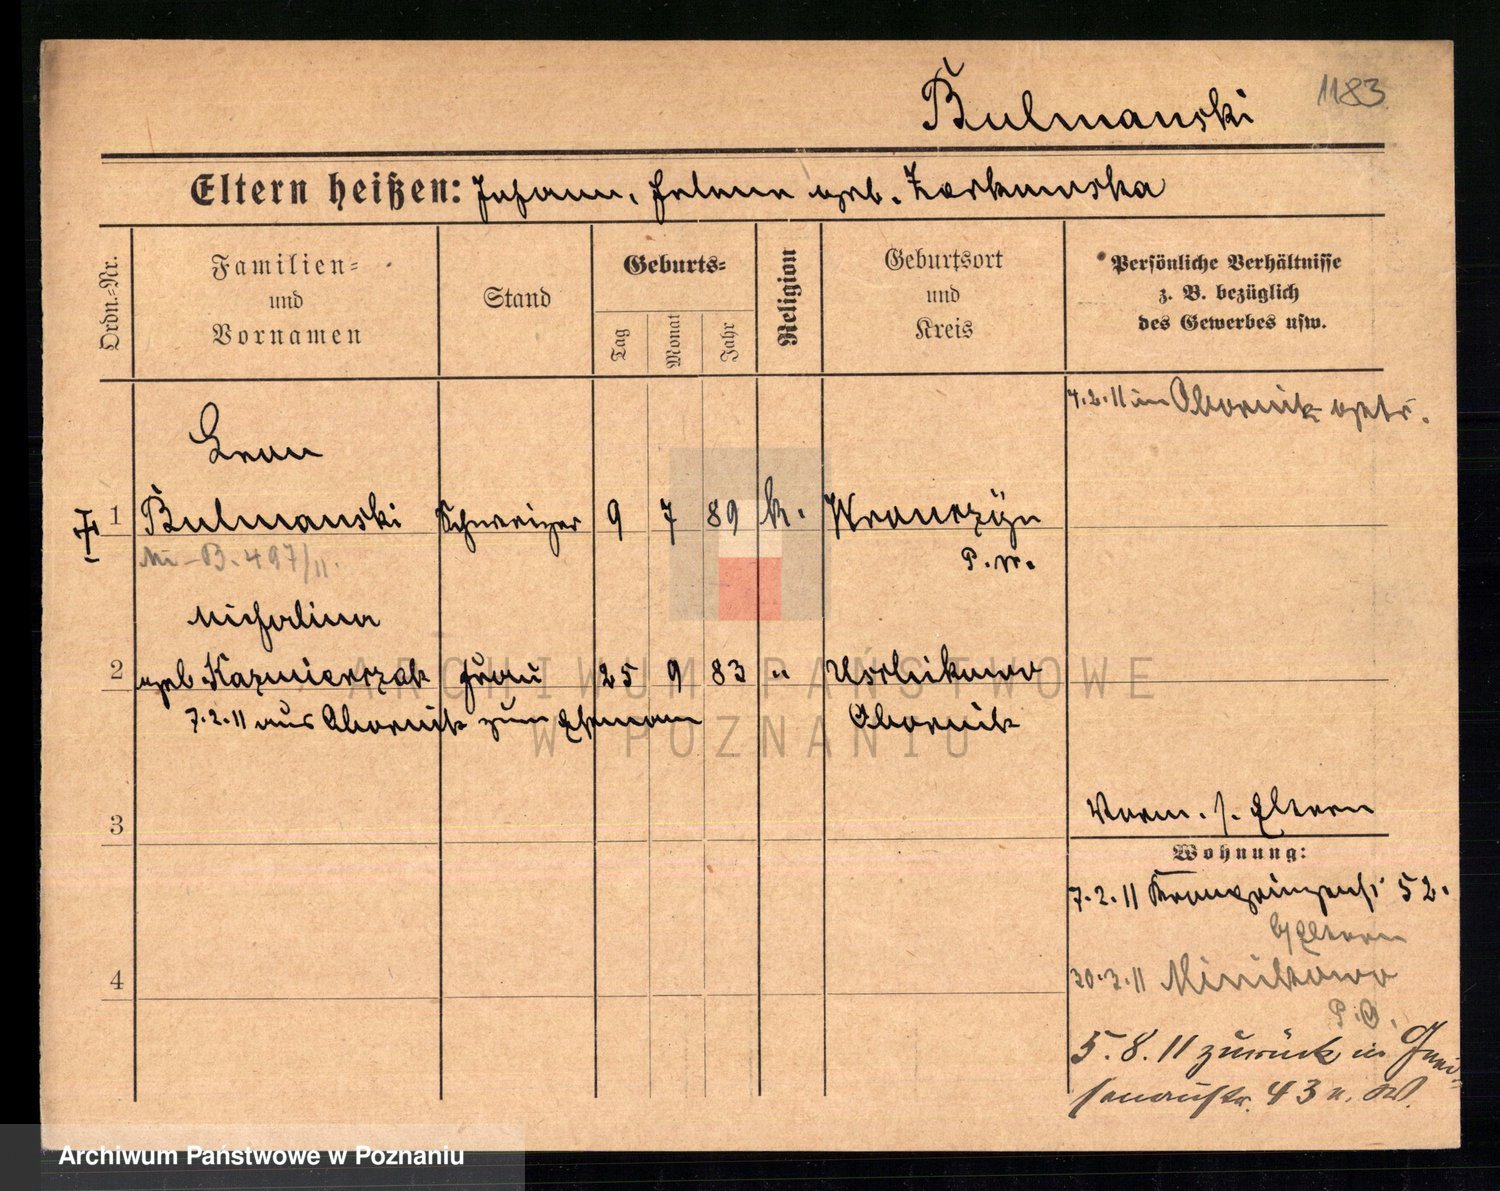 1183
Bulmanski
Eltern heißen: Johann, Helene geb.
Ordn.-Nr.
Familien-
und
Vornamen
Stand
Geburts-
Tag
Monat
Jahr
Religion
Geburtsort
und
Kreis
Persönliche Verhältnisse
z. B. bezüglich
des Gewerbes usw.
7.2.11 in Obornik
Leon
1 Bulmanski Schweizer 9 7 89 k. Wronczyn
B. 497/11.
P. W.
Michalina
2 geb Kazmierczak Frau 25 9 83 " Uscikowo
7.2.11 aus Obornik zum Ehemann Obornik
3
Vorm. s. Eltern
Wohnung:
7.2.11 Kronprinzenst. 52.
b/Eltern
4
30.3.11 Minikowo
P.O.
5.8.11 zurück in Gnei-
senaustr. 43 n. W.
ARCHIWUM PAŃSTWOWE
W POZNANIU
Archiwum Państwowe w Poznaniu